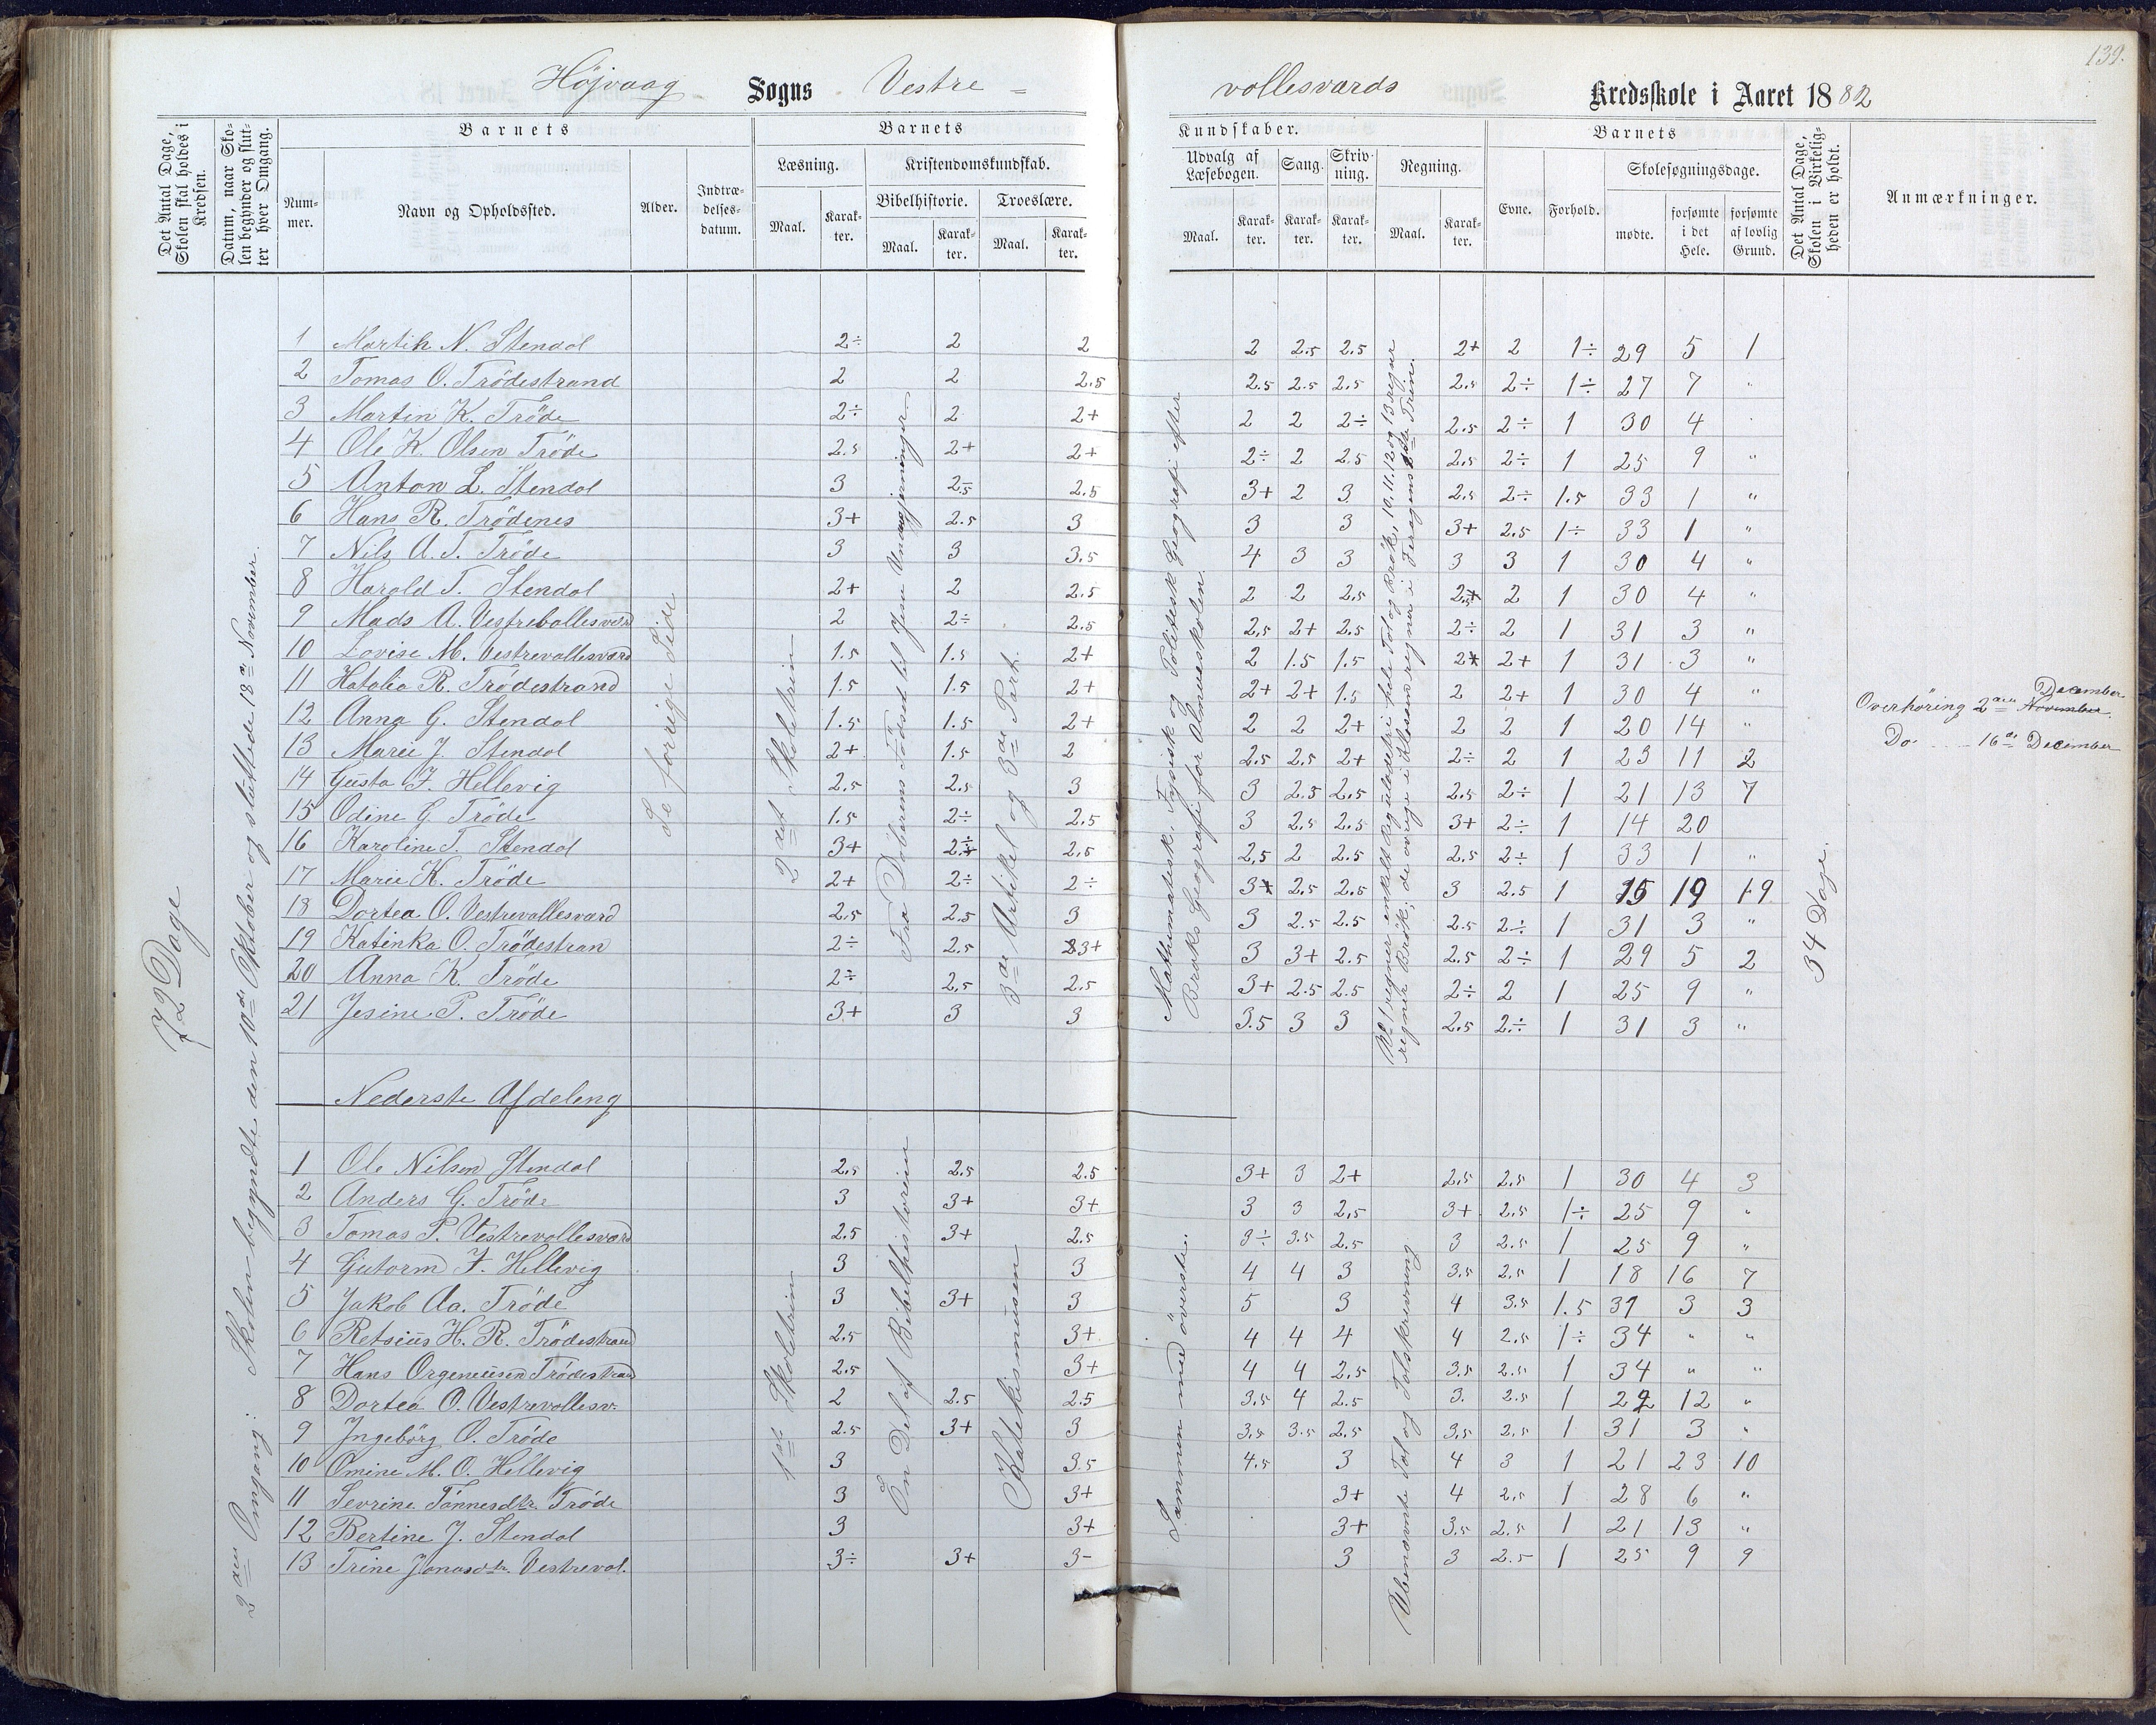 139.
Höjvaag Sogns Vestre = vollesvards Kredsskole i Aaret 1882
Det Antal Dage, Skolen skal holdes i Kredsen.
Datum, naar Skolen begynder og slutter hver Omgang.
Barnets
Nummer.
Navn og Opholdssted.
Alder.
Indtrædelsesdatum.
Barnets
Læsning.
Maal.
Karakter.
Kristendomskundskab.
Bibelhistorie.
Maal.
Karakter.
Troeslære.
Maal.
Karakter.
Kundskaber.
Udvalg af Læsebogen.
Maal.
Karakter.
Sang.
Karakter.
Skrivning.
Karakter.
Regning.
Maal.
Karakter.
Barnets
Evne.
Forhold.
Skolesøgningsdage.
mødte.
forsømte i det Hele.
forsømte af lovlig Grund.
Det Antal Dage, Skolen i Virkeligheden er holdt.
Anmærkninger.
72 Dage
2den Omgang: Skolen begyndte den 10de Oktober og sluttede 18de November.
Se forrige Side
2det Skoletrin
Fra Döberens Födsel til Jesu Undergjerninger
3de Artikel og 3de Part.
Mathematisk, Fysisk og Politisk Geografi efter
Broks Geografi for Almueskolen.
34 Dage.
Overhöring 2den November. December
Do. 16de December
1 Martin N. Stendal 2÷ 2 2 2 2.5 2.5 2+ 2 1÷ 29 5 1
2 Tomas O. Trödestrand 2 2 2.5 2.5 2.5 2.5 2.5 2÷ 1÷ 27 7 "
3 Martin K. Tröde 2÷ 2 2+ 2 2 2÷ 2.5 2÷ 1 30 4
4 Ole K. Olsen Tröde 2.5 2+ 2+ 2÷ 2 2.5 2.5 2÷ 1 25 9 "
5 Anton L. Stendal 3 2.5 2.5 3+ 2 3 2.5 2÷ 1.5 33 1 "
6 Hans R. Trödenes 3+ 2.5 3 3 3 3+ 2.5 1÷ 33 1 "
7 Nils A. T. Tröde 3 3 3.5 4 3 3 3 3 1 30 4 "
8 Harald T. Stendal 2+ 2 2.5 2 2 2.5 2.5 2 1 30 4 "
9 Mads A. Vestrebollesvard 2 2÷ 2.5 2.5 2+ 2.5 2÷ 2 1 31 3 "
10 Lovise M. Vestrevollesvard 1.5 1.5 2+ 2 1.5 1.5 2+ 2+ 1 31 3 "
11 Hatalia R. Trödestrand 1.5 1.5 2+ 2+ 2+ 1.5 2 2+ 1 30 4 "
12 Anna G. Stendal 1.5 1.5 2+ 2 2 2+ 2 2 1 20 14 "
13 Marie J. Stendal 2+ 1.5 2 2.5 2.5 2+ 2÷ 2 1 23 11 2
14 Gusta F. Hellevig 2.5 2.5 3 3 2.5 2.5 2.5 2÷ 1 21 13 7
15 Odine G Tröde 1.5 2÷ 2.5 3 2.5 2.5 3+ 2÷ 1 14 20
16 Karoline T. Stendal 3+ 2÷ 2.5 2.5 2 2.5 2.5 2÷ 1 33 1 "
17 Marie K. Tröde 2+ 2÷ 2÷ 3+ 2.5 2.5 3 2.5 1 15 19 19
18 Dortea O. Vestrevollesvard 2.5 2.5 3 3 2.5 2.5 2.5 2÷ 1 31 3 "
19 Katinka O. Trödestran 2÷ 2.5 3+ 3 3+ 2.5 2.5 2÷ 1 29 5 2
20 Anna K. Tröde 2÷ 2.5 2.5 3+ 2.5 2.5 2÷ 2 1 25 9 "
21 Jesine P. Tröde 3+ 3 3 3.5 3 3 2.5 2÷ 1 31 3 "
Nederste Afdeling
1ste Skoletrin
En Del af Bibelhistorien
Katekismusen
Sammen med överste.
Ubenævnte Tal og Talskrevning
1 Ole Nilsen Stendal 2.5 2.5 2.5 3+ 3 2+ 2.5 2.5 1 30 4 3
2 Anders G. Tröde 3 3+ 3+ 3 3 2.5 3+ 2.5 1÷ 25 9 "
3 Tomas P. Vestrevollesvard 2.5 3+ 2.5 3÷ 3.5 2.5 3 2.5 1 25 9 "
4 Gutorm F. Hellevig 3 3 4 4 3 3.5 2.5 1 18 16 7
5 Jakob Aa. Tröde 3 3+ 3 5 3 4 3.5 1.5 31 3 3
6 Retsius H. R. Trödestrand 2.5 3+ 4 4 4 4 2.5 1÷ 34 " "
7 Hans Orgeneusen Trödestrand 2.5 3+ 4 4 2.5 3.5 2.5 1 34 " "
8 Dortea O. Vestrevollesv. 2 2.5 2.5 3.5 4 2.5 3. 2.5 1 22 12 "
9 Ingebörg O. Tröde 2.5 3+ 3 3.5 3.5 2.5 3.5 2.5 1 31 3 "
10 Omine M. O. Hellevig 3 3.5 4.5 3 4 3 1 21 23 10
11 Sevrine Tönnesdtr. Tröde 3 3+ 3+ 4 2.5 1 28 6 "
12 Bertine J. Stendal 3 3+ 3+ 3.5 2.5 1 21 13 "
13 Trine Jonasdtr. Vestrevol. 3÷ 3+ 3- 3 3 2.5 1 25 9 9